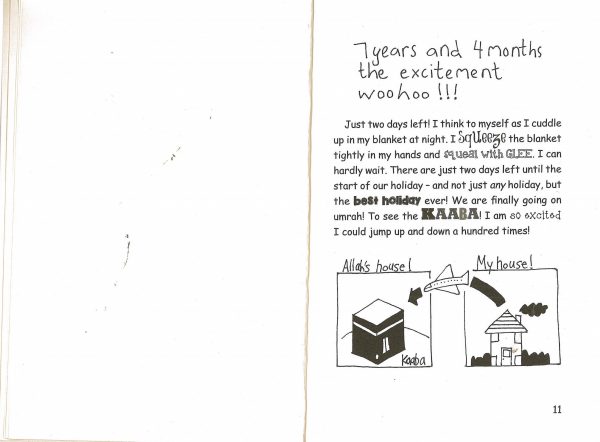 7 years and 4 months
the excitement
woohoo !!!
Just two days left! I think to myself as I cuddle
up in my blanket at night. I SQUEEZE the blanket
tightly in my hands and squeal with GLEE. I can
hardly wait. There are just two days left until the
start of our holiday – and not just any holiday, but
the best holiday ever! We are finally going on
umrah! To see the KAABA! I am so excited
I could jump up and down a hundred times!
Allah's house!
My house!
Kaaba
11